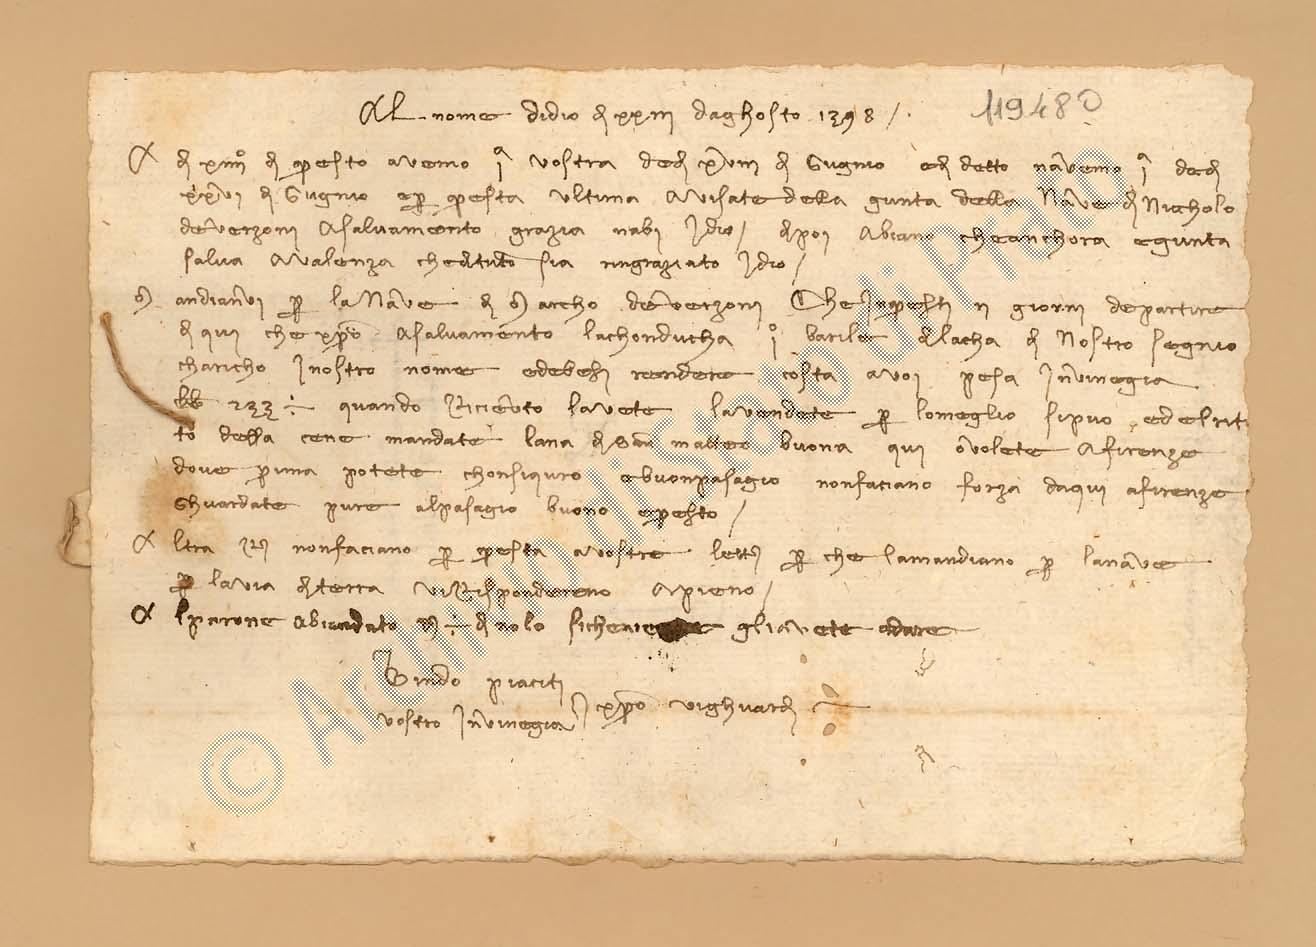 Al nome didio di xxiii daghosto 1398 /.
119480
A di xiiii° di questo avemo 1a vostra dedi xviii di Gugnio edi detto navemo 1a dedi
xxvi di Gugnio e per questa ultima Avisate della gunta della Nave di Niccholo
deverzoni Asalvamento grazia nabi Jdio / dipoi Abiano cheanchora egunta
salva Avalenza cheditutto sia ringraziato Jdio /
M andianvi per la Nave di Marcho deverzoni Che Inquesti ii giorni departire
di qui che xpo Asalvamento lachonducha 1° barile di lacha di Nostro segnio
charicho Inostro nome edebesi rendere costa avoi pesa Invinegia
lb 233 quando Ricievuto lavete lavendete per lomeglio sipuo ed elrit
to della cene mandate lana di san matteo buona qui ovolete Afirenze
dove prima potete chonsiquro ebuonpasagio nonfaciano forza daqui afirenze
Ghuardate pure alpasagio buono epresto /
A ltra Ri nonfaciano per questa avostre lettere per che lamandiano per lanave
per lavia di terra viRisponderemo Apieno /
A lparone Abiandato di nolo siche gliavete adare
Bindo piaciti
vostro Invinegia Jxpo vighuardi
© Archivio di Stato di Prato